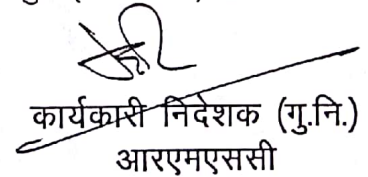 कार्यकारी निदेशक (गु.नि.)
आरएमएससी